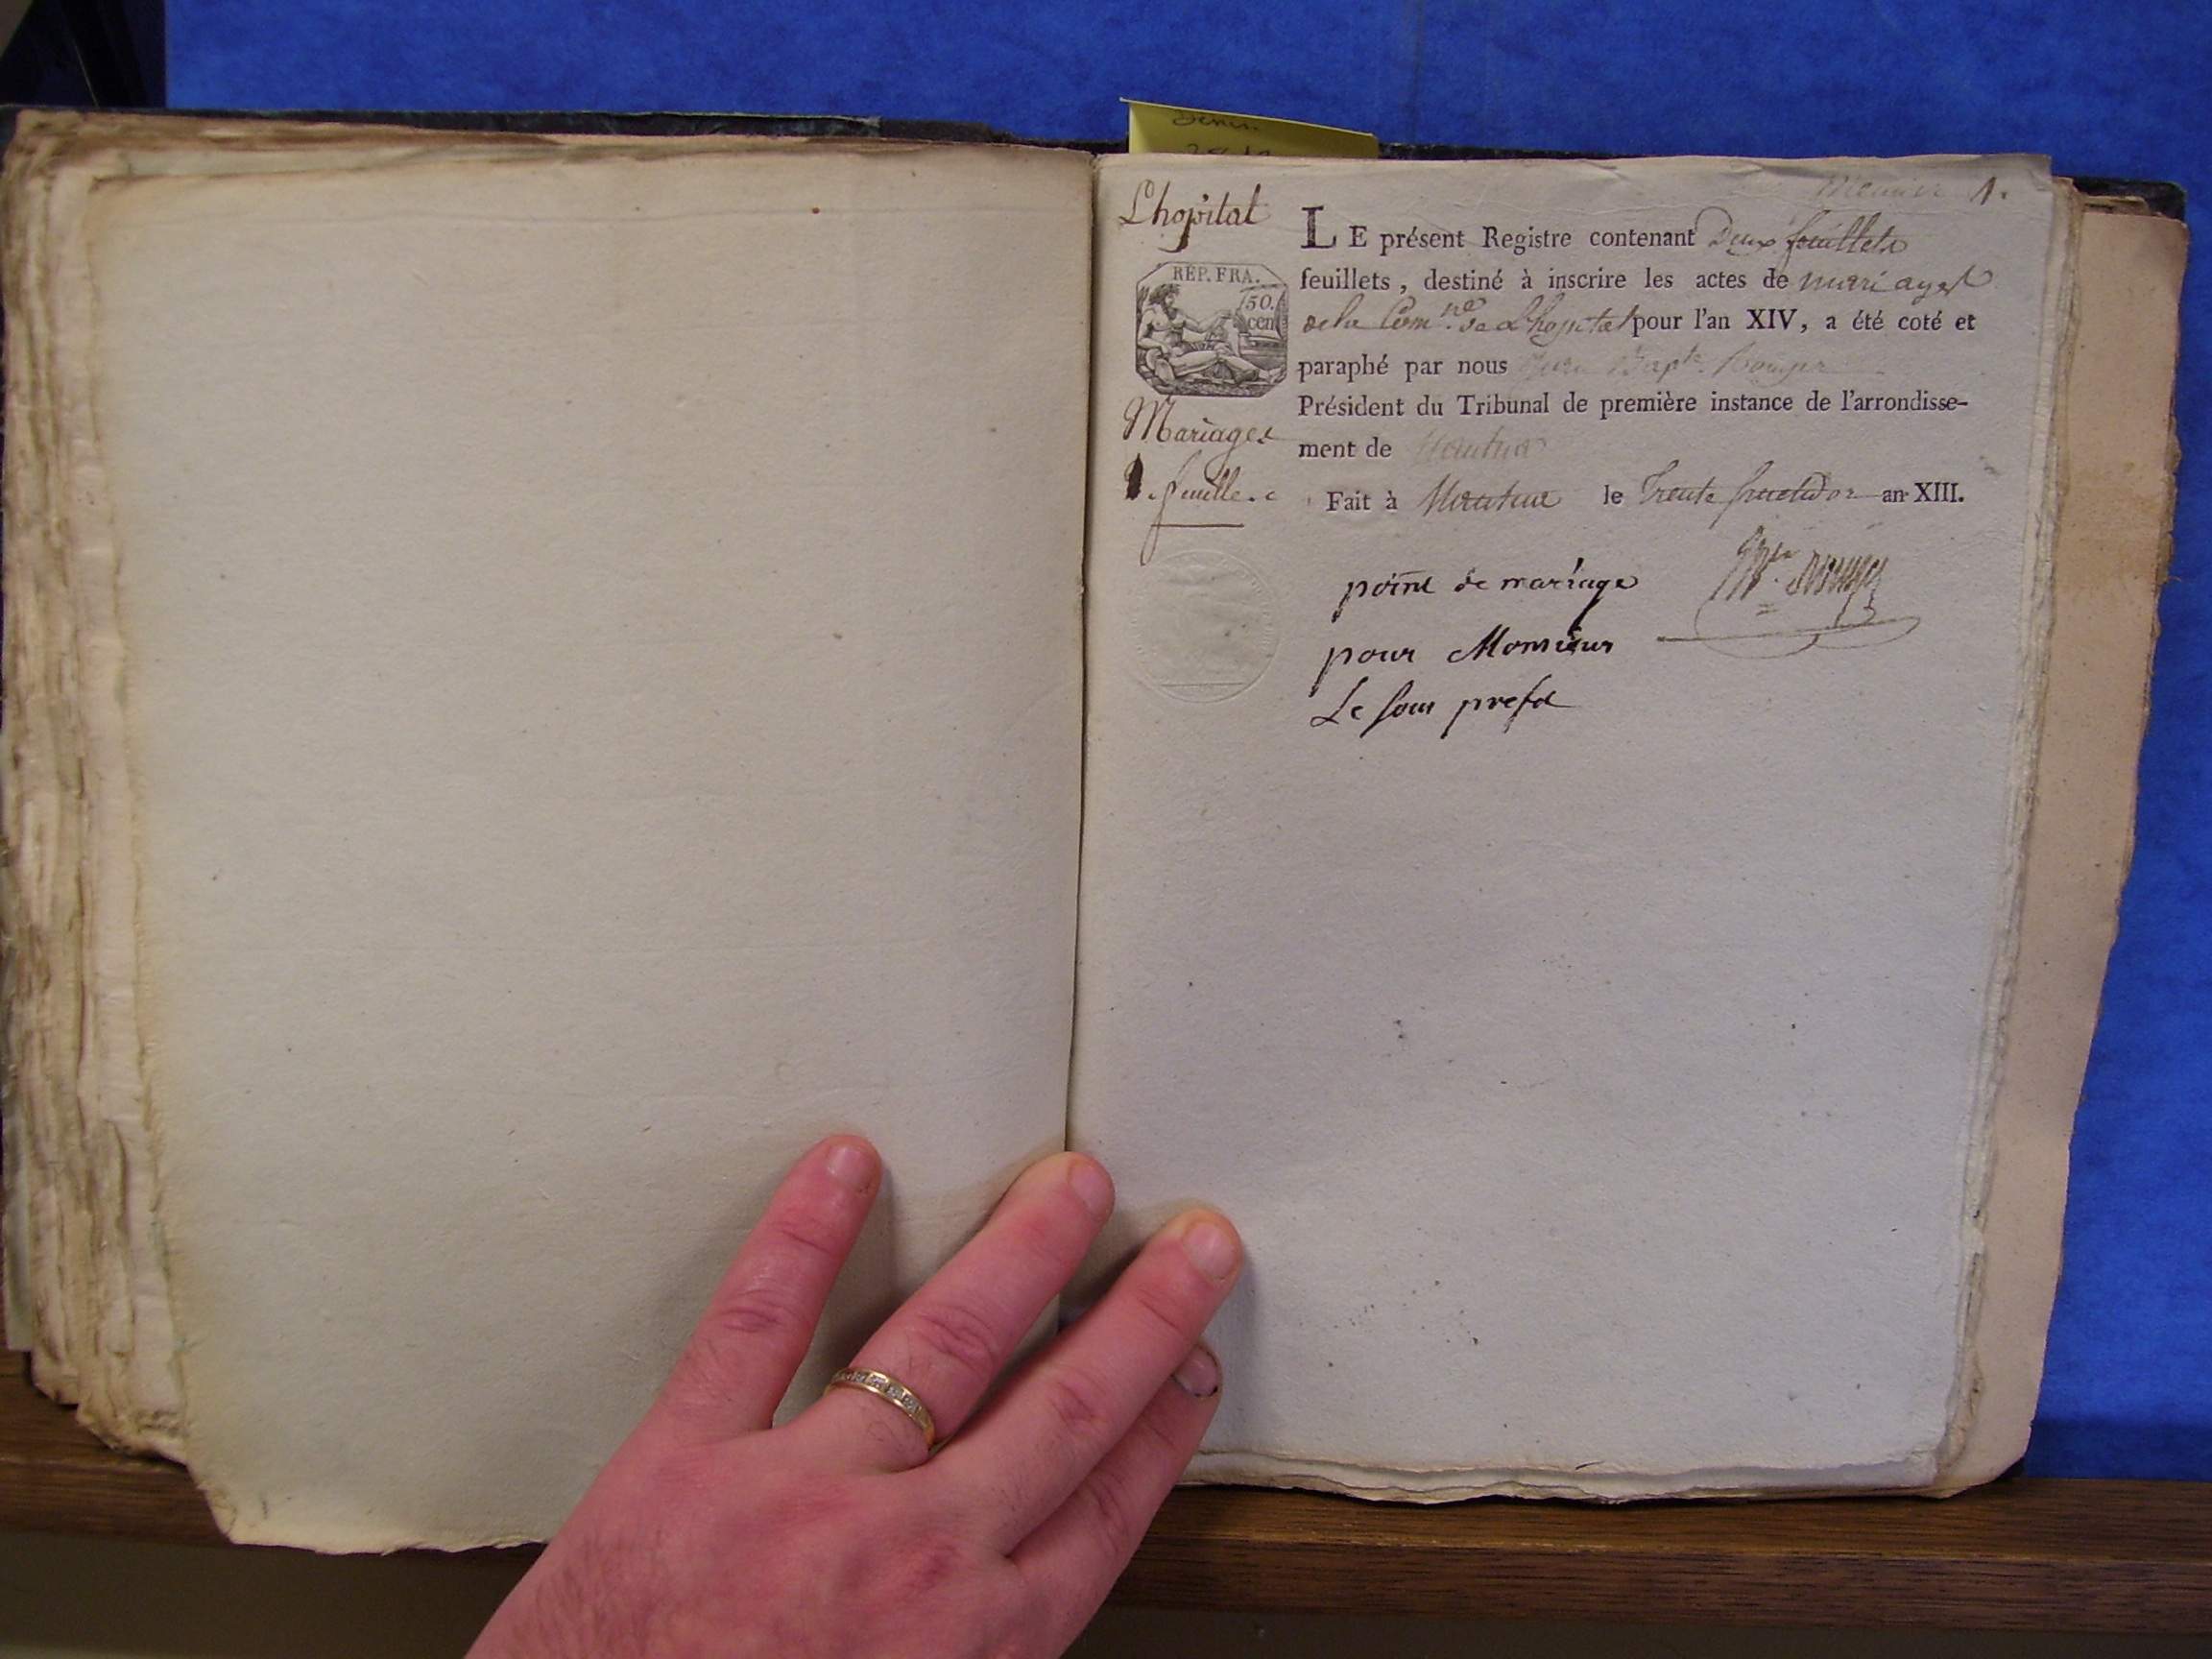 L'hopital
REP. FRA.
50.
cent
Mariages
feuille
1.
LE présent Registre contenant Deux feuillets
feuillets, destiné à inscrire les actes de mariages
de la Com.ne de L'hopital pour l'an XIV, a été coté et
paraphé par nous Jean Bapte. Rouyer
Président du Tribunal de première instance de l'arrondisse-
ment de Nantua
Fait à Nantua le Trente fructidor an XIII.
point de mariage
pour Monsieur
Le sous prefet